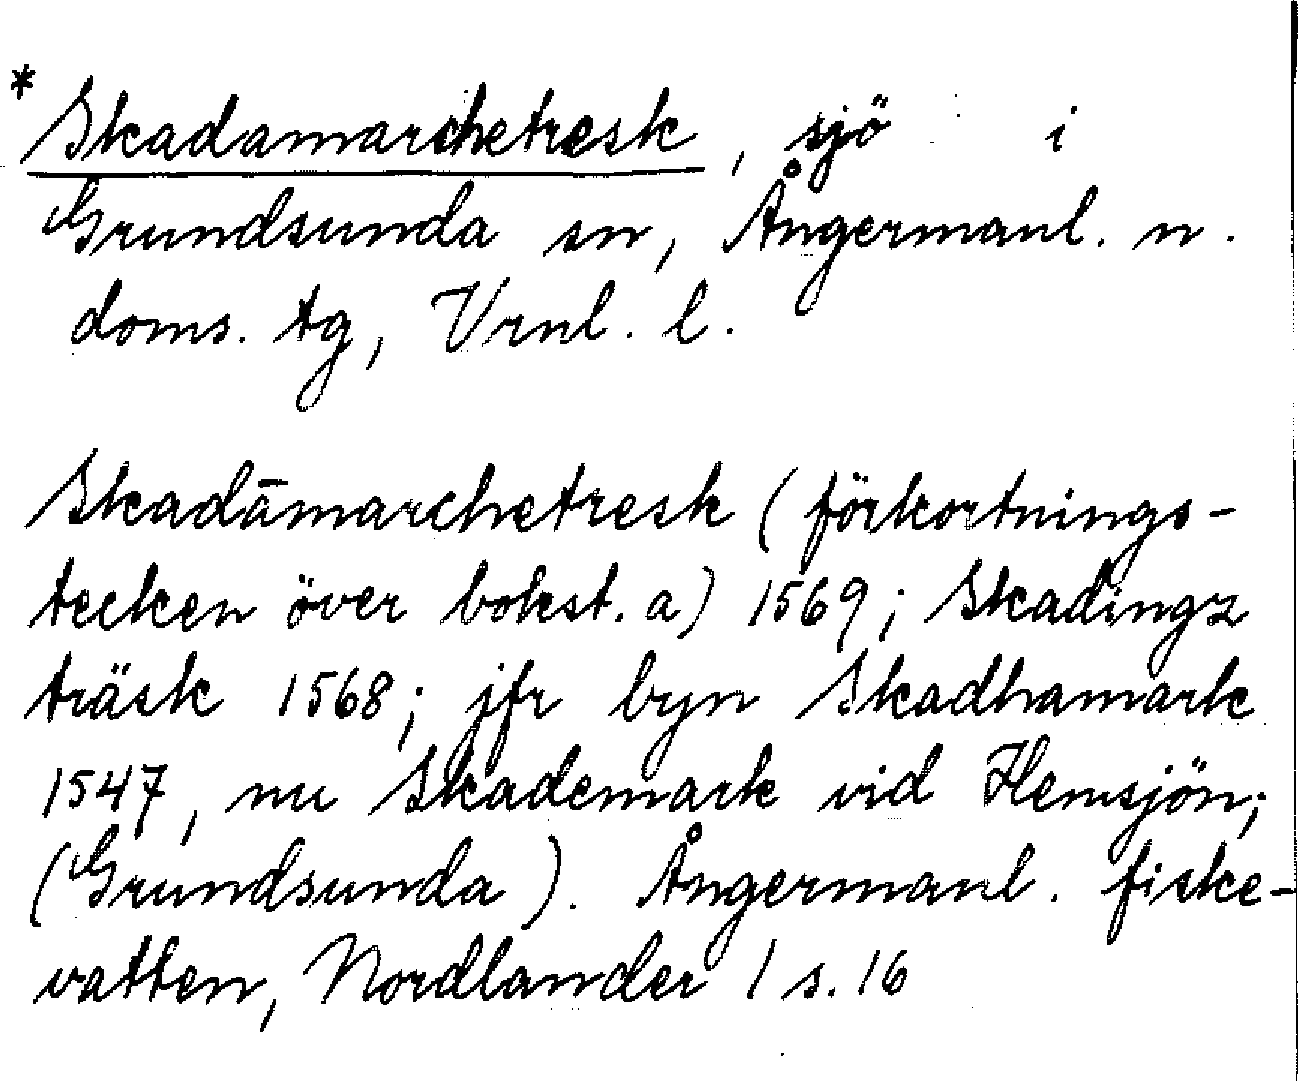 * Skadamarchetresk, sjö i
Grundsunda sn, Ångermanl. n.
doms. tg, Vrnl. l.
Skadāmarchetresk (förkortnings-
tecken över bokst. a) 1569; Skadingz
träsk 1568; jfr byn Skadhamark
1547, nu Skademark vid Hemsjön;
(Grundsunda). Ångermanl. fiske-
vatten, Nordlander 1 s. 16